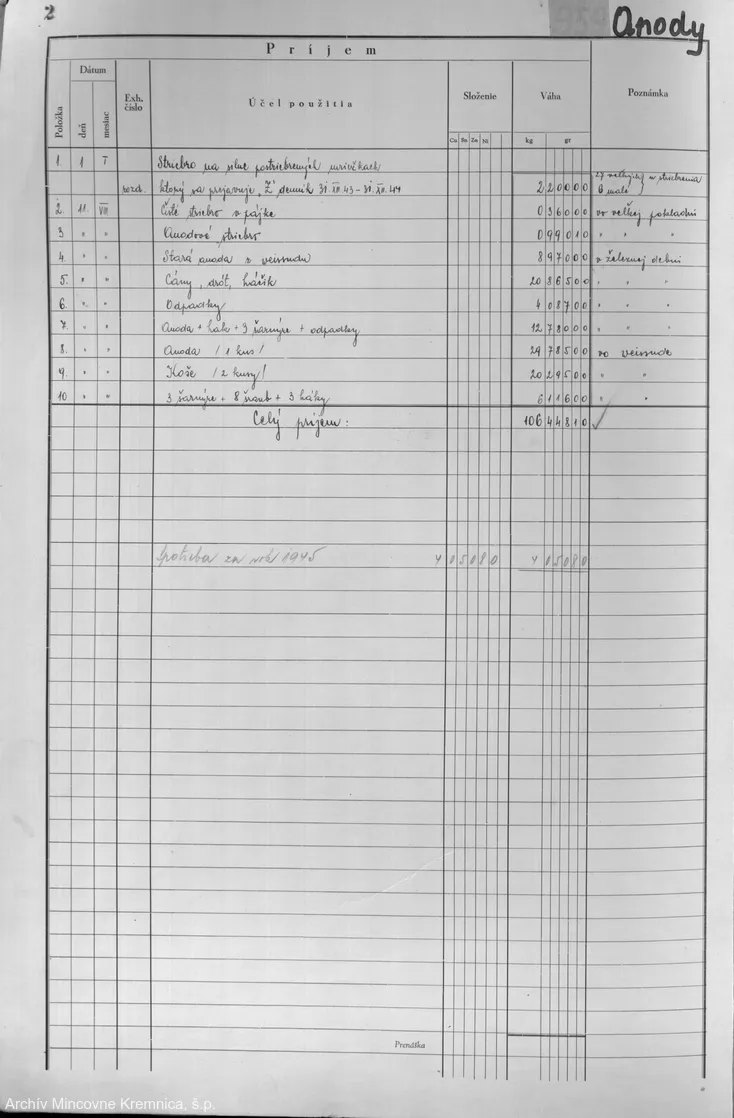 2
Anody
Príjem
Položka
Dátum
deň
mesiac
Exh. číslo
Účel použitia
Složenie
Cu Sn Zn Ni
Váha
kg gr
Poznámka
1. 1 I Striebro na silne postriebrených mriežkach
rozd. ktorý sa prejavuje „Ž" denník 31.XII.43 – 31.XII.44 2 2 0 0 0 0 6 malé
2. 11. VIII čisté striebro v pájke 0 3 6 0 0 0 vo veľkej pokladni
3 " " Anodové striebro 0 9 9 0 1 0 " " "
4. " " Stará anoda z weissudu 8 9 7 0 0 0 v železnej debni
5. " " Cány, drôt, háčik 20 8 6 5 0 0 " " "
6. " " Odpadky 4 0 8 7 0 0 " " "
7. " " Anoda + hák + 3 šarnýre + odpadky 12 7 8 0 0 0 " " "
8. " " Anoda /1 kus/ 29 7 8 5 0 0 vo weissude
9. " " Koše /2 kusy/ 20 2 9 5 0 0 " "
10 " " 3 šarnýre + 8 šraub + 3 háky 6 1 1 6 0 0 " "
Celý príjem: 106 4 4 8 1 0
Spotreba za rok 1945 4 0 5 0 8 0 4 0 5 0 8 0
Prenáška
Archív Mincovne Kremnica, š.p.